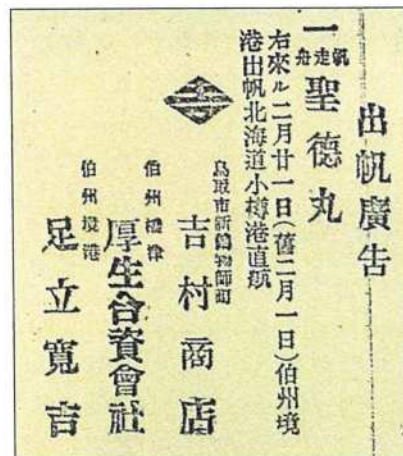 出帆廣告
一帆走舟聖德丸
右來ル二月廿一日(舊二月一日)伯州境
港出帆北海道小樽港直航
鳥取市新鑄物師町
吉村商店
伯州橋津
厚生合資會社
伯州境港
足立寬吉